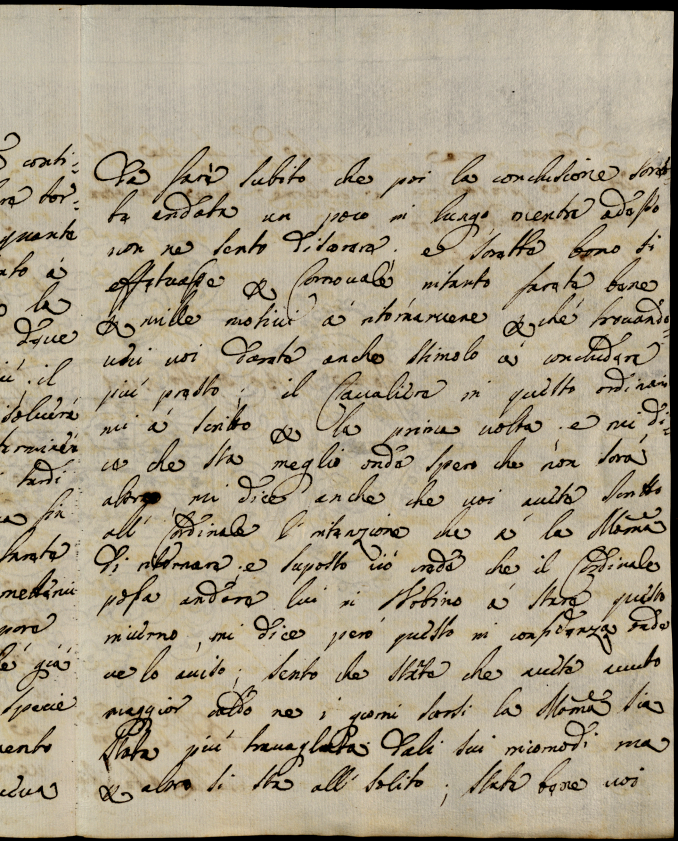 conti:
tor:
quanta
nto à
la
Dque
iù il
isoluerà
terminerà
tardi
sin
sarete
mettervi
pare
già
specie
mento
La farà subito che poi la conclusione
ta andata un poco in lungo mentre adesso
non ne sento discorrere. e sarebbe bene si
effetuasse Carnoualé intanto farete bene
mille motiui à ritornaruene ché trouando
uci uoi darete anche stimolo à concludere
più presto; il Caualiere in questo ordinario
mi à scritto la prima uolta. e mi di:
ce che sta meglio onde spero che non sarà
altro mi dice anche che uoi auete scritto
all' Cardinale l'intenzione che à la
di ritornare. e suposto ciò crede che il Cardinale
possa andare lui in à stare questo
inuerno, mi dice però questo in confidenza onde
ue lo auiso; sento che state che auete auuto
maggior caldo ne i giorni scorsi la sia
stata più trauagliata dali sui incomodi ma
altro si sta all' solito; state bene uoi